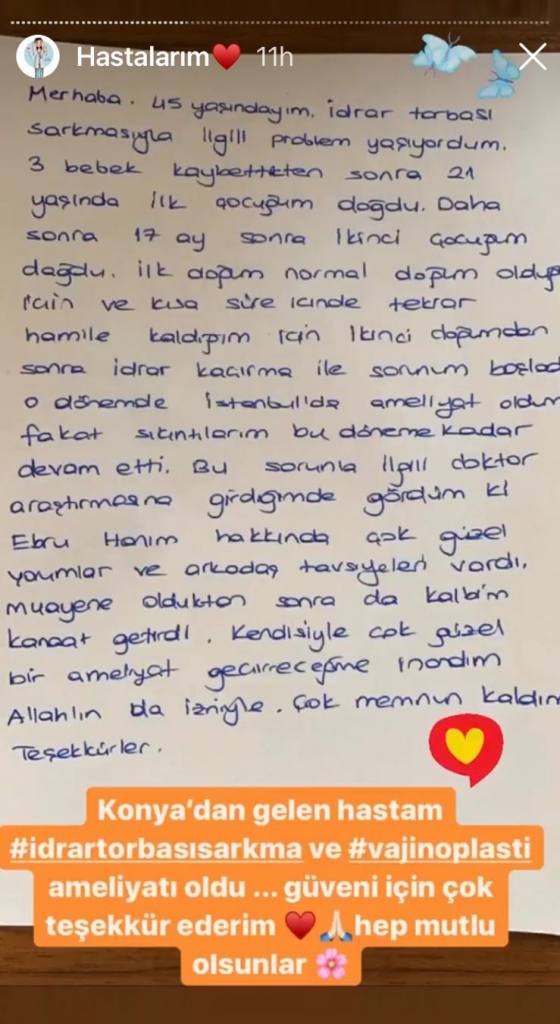 Hastalarım❤️ 11h
Merhaba. 45 yaşındayım. idrar torbası
sarkmasıyla ilgili problem yaşıyordum.
3 bebek kaybettikten sonra 21
yaşında ilk çocuğum doğdu. Daha
sonra 17 ay sonra ikinci çocuğum
doğdu. ilk doğum normal doğum olduğ
için ve kısa süre içinde tekrar
hamile kaldığım için ikinci doğumdan
sonra idrar kaçırma ile sorunum başlad
o dönemde istanbul'da ameliyat oldum
fakat sıkıntılarım bu döneme kadar
devam etti. Bu sorunla ilgili doktor
araştırmasına girdiğimde gördüm ki
Ebru Hanım hakkında çok güzel
yorumlar ve arkadaş tavsiyeleri vardı.
muayene olduktan sonra da kalbim
kanaat getirdi. Kendisiyle çok güzel
bir ameliyat geçireceğime inandım
Allah'ın da izniyle. Çok memnun kaldım
Teşekkürler.
Konya'dan gelen hastam
#idrartorbasısarkma ve #vajinoplasti
ameliyatı oldu ... güveni için çok
teşekkür ederim ❤️🙏🏻hep mutlu
olsunlar 🌸